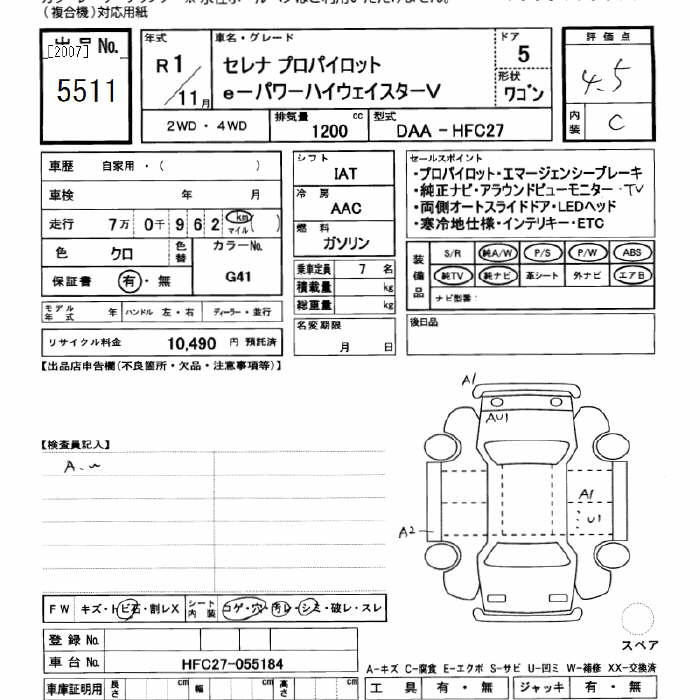 (複合機)対応用紙
出品No.
[2007]
5511
年式
R1/11月
車名・グレード
セレナ プロパイロット
e-パワーハイウェイスターV
ドア
5
形状
ワゴン
評価点
4.5
内装
C
2WD・4WD
排気量 1200 cc
型式 DAA-HFC27
車歴 自家用・( )
車検 年 月
走行 7万 0千 9 6 2 (km マイル)
色 クロ
色替
カラーNo.
G41
保証書 有・無
モデル年式 年
ハンドル 左・右
ディーラー・並行
リサイクル料金 10,490 円 預託済
シフト
IAT
冷房
AAC
燃料
ガソリン
乗車定員 7 名
積載量 kg
総重量 kg
名変期限
月 日
セールスポイント
・プロパイロット・エマージェンシーブレーキ
・純正ナビ・アラウンドビューモニター・TV
・両側オートスライドドア・LEDヘッド
・寒冷地仕様・インテリキー・ETC
装備品
S/R 純A/W P/S P/W ABS
純TV 純ナビ 革シート 外ナビ エアB
ナビ型番:
後日品
【出品店申告欄(不良箇所・欠品・注意事項等)】
【検査員記入】
A1
AU1
A1
U1
A2
FW キズ・トビ石・割レX
シート内装 コゲ・穴・汚レ・シミ・破レ・スレ
登録No.
車台No. HFC27-055184
車庫証明用 長さ cm 幅 cm 高さ cm
スペア
A-キズ C-腐食 E-エクボ S-サビ U-凹ミ W-補修 XX-交換済
工具 有・無 ジャッキ 有・無